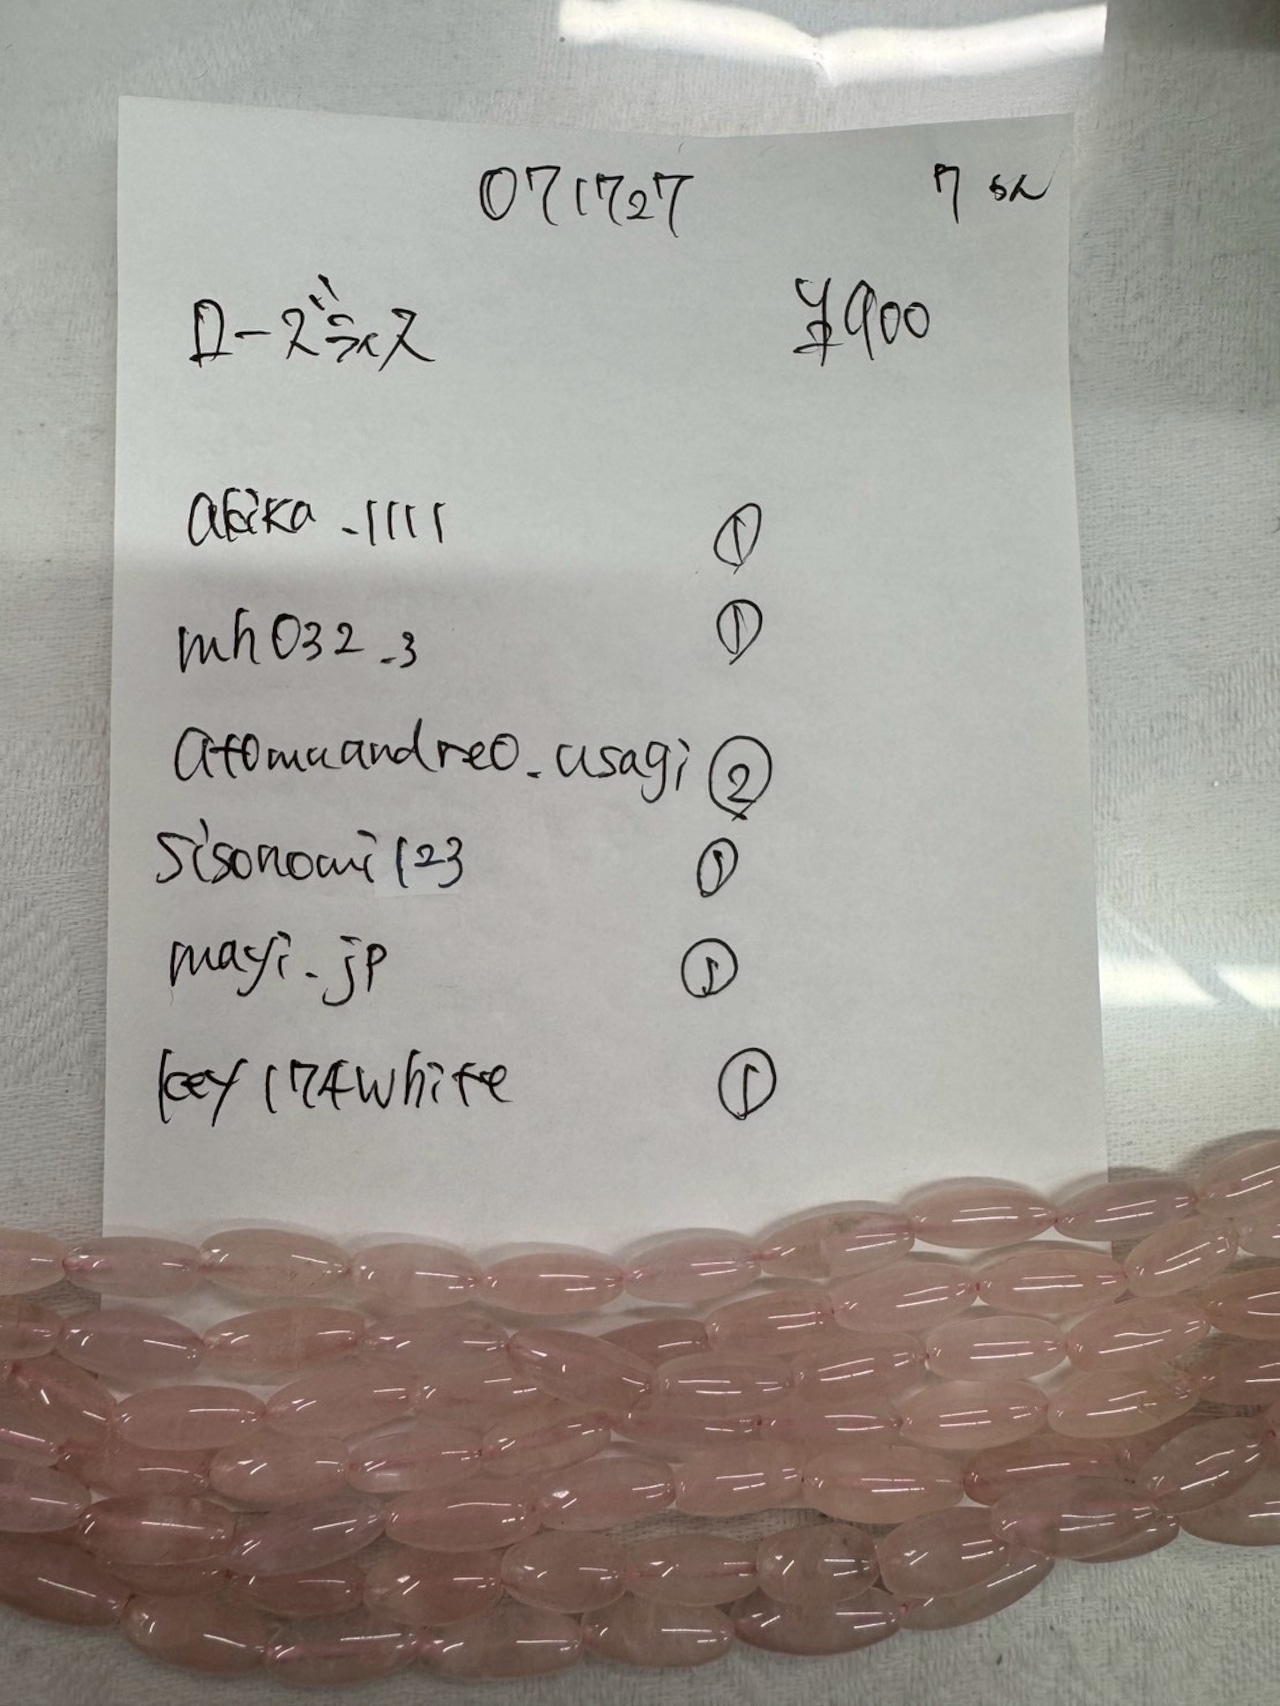 071727 7らん
ローズライス ¥900
akika_1111 ①
mh032_3 ①
atomuandreo_usagi ②
sisonomi123 ①
mayi_jp ①
key174white ①